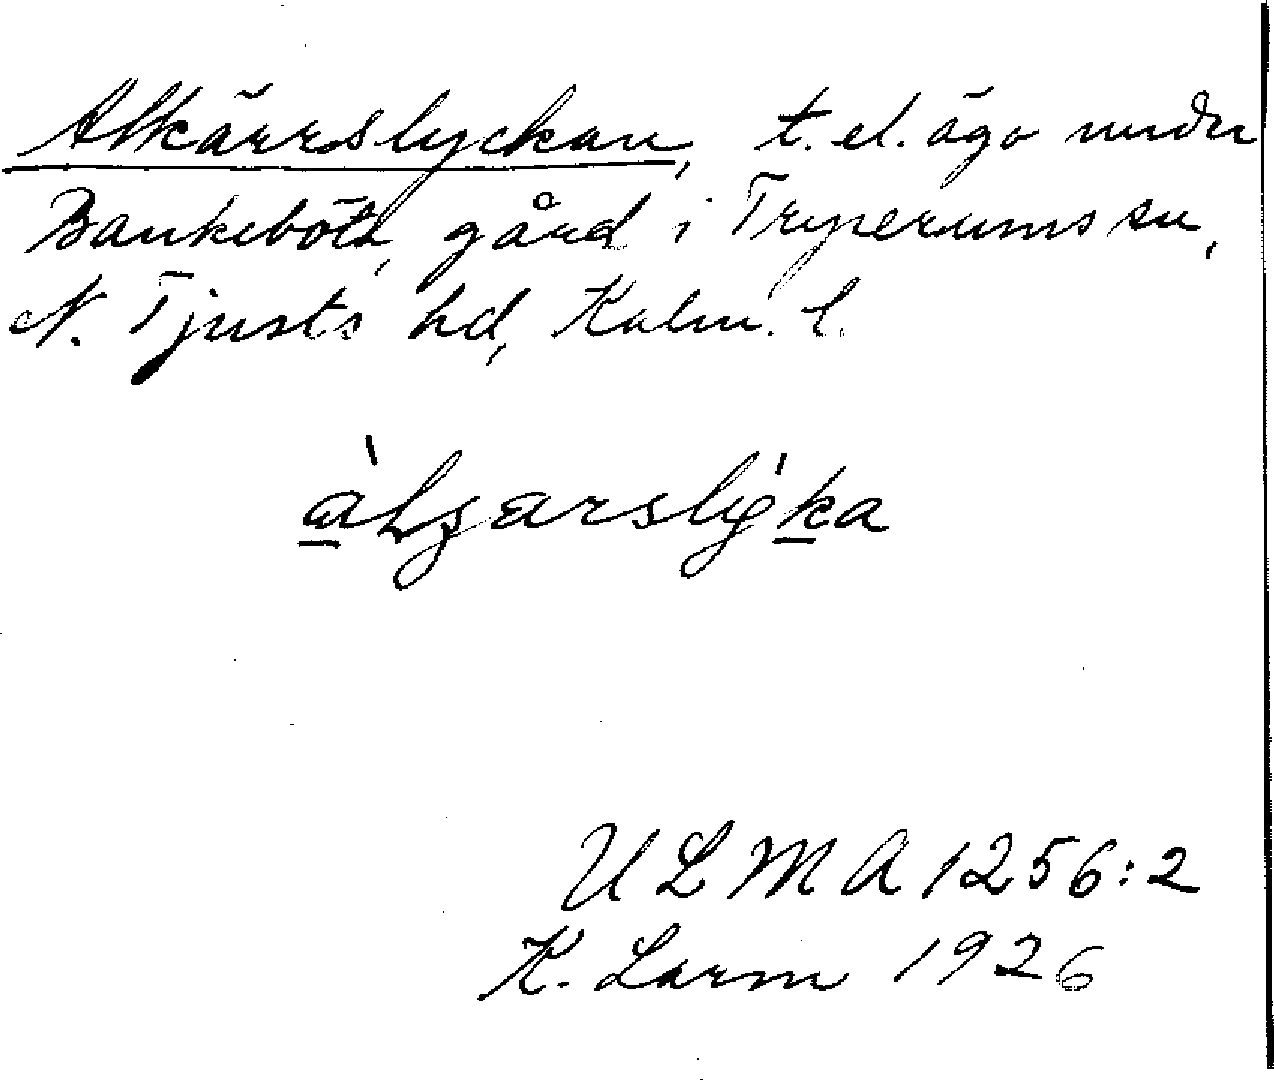 Alkärrslyckan, t. el. ägo under
Bankeböta, gård i Tryserums sn,
N. Tjusts hd, Kalm. l.
U L M A 1256:2
K. Larm 1926